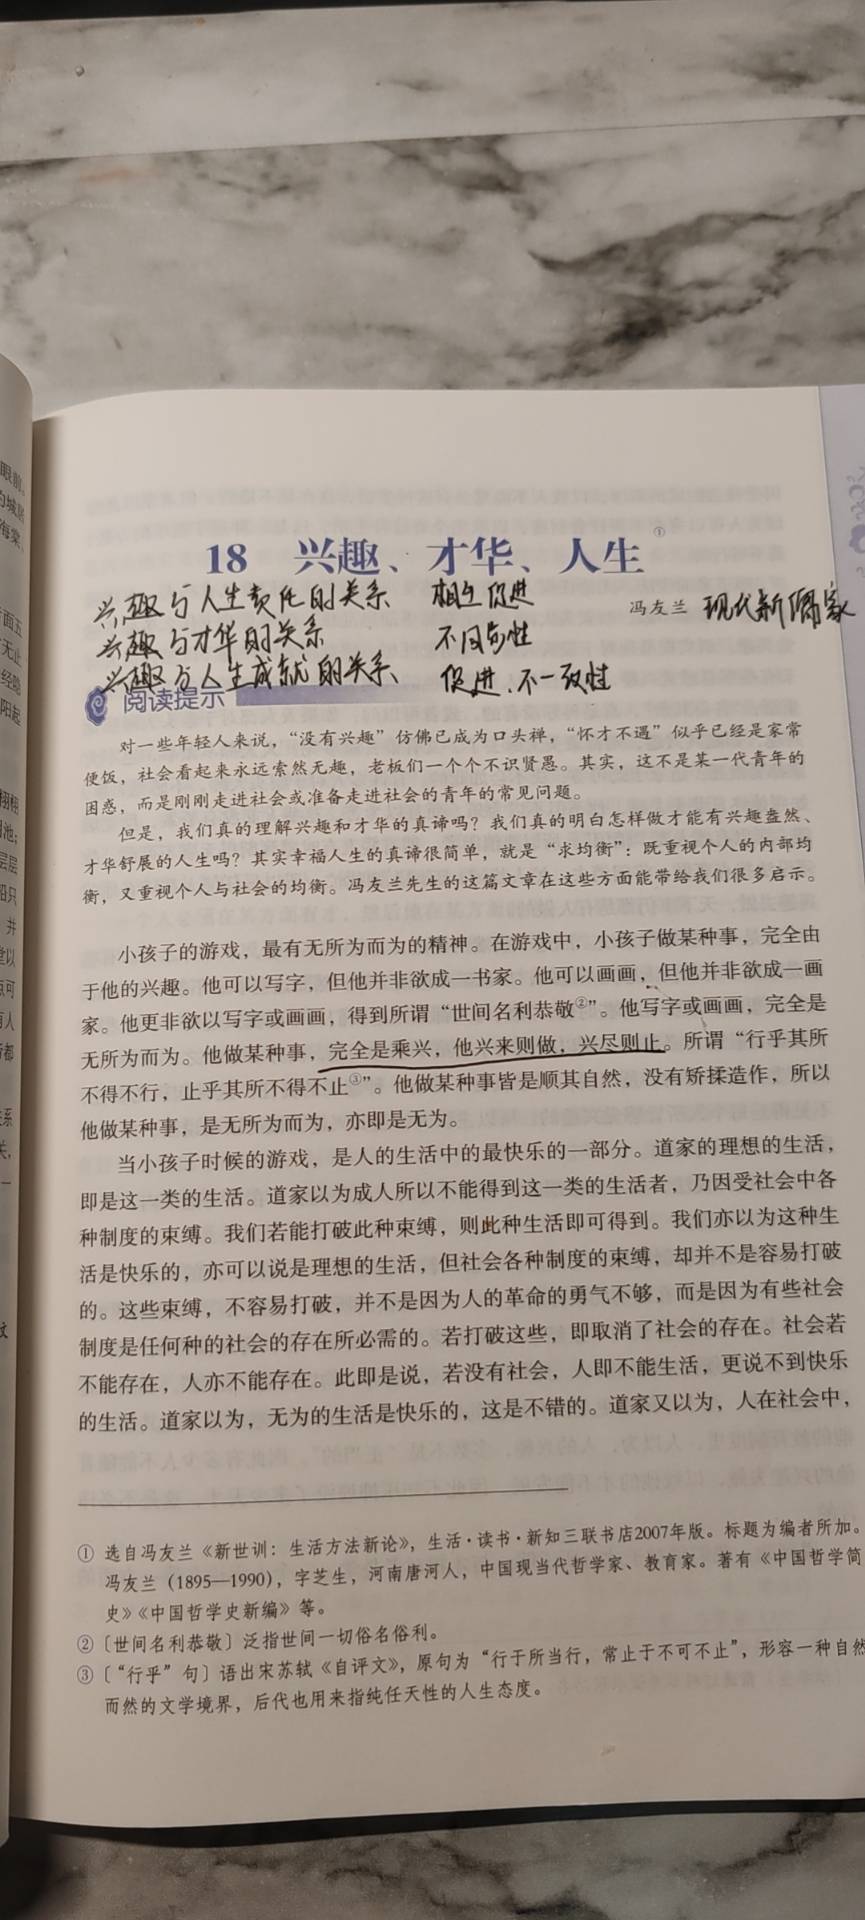 18 兴趣、才华、人生①
兴趣与人生责任的关系 相互促进
冯友兰 现代新儒家
兴趣与才华的关系 不同向性
兴趣与人生成就的关系 促进、不一致性
阅读提示
对一些年轻人来说，“没有兴趣”仿佛已成为口头禅，“怀才不遇”似乎已经是家常
便饭，社会看起来永远索然无趣，老板们一个个不识贤愚。其实，这不是某一代青年的
困惑，而是刚刚走进社会或准备走进社会的青年的常见问题。
但是，我们真的理解兴趣和才华的真谛吗？我们真的明白怎样做才能有兴趣盎然、
才华舒展的人生吗？其实幸福人生的真谛很简单，就是“求均衡”：既重视个人的内部均
衡，又重视个人与社会的均衡。冯友兰先生的这篇文章在这些方面能带给我们很多启示。
小孩子的游戏，最有无所为而为的精神。在游戏中，小孩子做某种事，完全由
于他的兴趣。他可以写字，但他并非欲成一书家。他可以画画，但他并非欲成一画
家。他更非欲以写字或画画，得到所谓“世间名利恭敬②”。他写字或画画，完全是
无所为而为。他做某种事，完全是乘兴，他兴来则做，兴尽则止。所谓“行乎其所
不得不行，止乎其所不得不止③”。他做某种事皆是顺其自然，没有矫揉造作，所以
他做某种事，是无所为而为，亦即是无为。
当小孩子时候的游戏，是人的生活中的最快乐的一部分。道家的理想的生活，
即是这一类的生活。道家以为成人所以不能得到这一类的生活者，乃因受社会中各
种制度的束缚。我们若能打破此种束缚，则此种生活即可得到。我们亦以为这种生
活是快乐的，亦可以说是理想的生活，但社会各种制度的束缚，却并不是容易打破
的。这些束缚，不容易打破，并不是因为人的革命的勇气不够，而是因为有些社会
制度是任何种的社会的存在所必需的。若打破这些，即取消了社会的存在。社会若
不能存在，人亦不能存在。此即是说，若没有社会，人即不能生活，更说不到快乐
的生活。道家以为，无为的生活是快乐的，这是不错的。道家又以为，人在社会中，
① 选自冯友兰《新世训：生活方法新论》，生活·读书·新知三联书店2007年版。标题为编者所加。
冯友兰（1895—1990），字芝生，河南唐河人，中国现当代哲学家、教育家。著有《中国哲学简
史》《中国哲学史新编》等。
②〔世间名利恭敬〕泛指世间一切俗名俗利。
③〔“行乎”句〕语出宋苏轼《自评文》，原句为“行于所当行，常止于不可不止”，形容一种自然
而然的文学境界，后代也用来指纯任天性的人生态度。